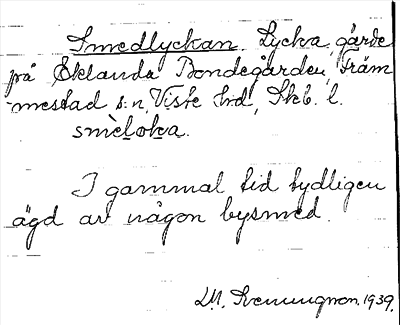 Smedlyckan. Lycka, gärde
på Eklanda Bondegården, Främ
mestad s:n, Viste hd, Skb. l.
smèloka.
I gammal tid tydligen
ägd av någon bysmed.